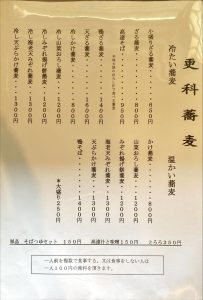 更科蕎麦
冷たい蕎麦
小盛りざる蕎麦・・・・650円
ざる蕎麦・・・・・・・800円
高遠そば・・・・・・・950円
鴨ざる蕎麦・・・・・・1400円
天ざる蕎麦・・・・・・1600円
冷し山菜おろし蕎麦・・・1200円
冷しみぞれ揚げ餅蕎麦・・1200円
冷し海老天みぞれ蕎麦・・1300円
冷し天ぷらかけ蕎麦・・・1300円
温かい蕎麦
かけ蕎麦・・・・・・・800円
山菜おろし蕎麦・・・・1200円
みぞれ揚げ餅蕎麦・・・1200円
海老天みぞれ蕎麦・・・1300円
天ぷらかけ蕎麦・・・・1300円
鴨そば・・・・・・・・1400円
*大盛り250円
単品 そばつゆセット 150円 高遠汁と味噌150円 とろろ350円
一人前を複数で食事する、又は食事をしない人は
一人100円の席料を頂きます。